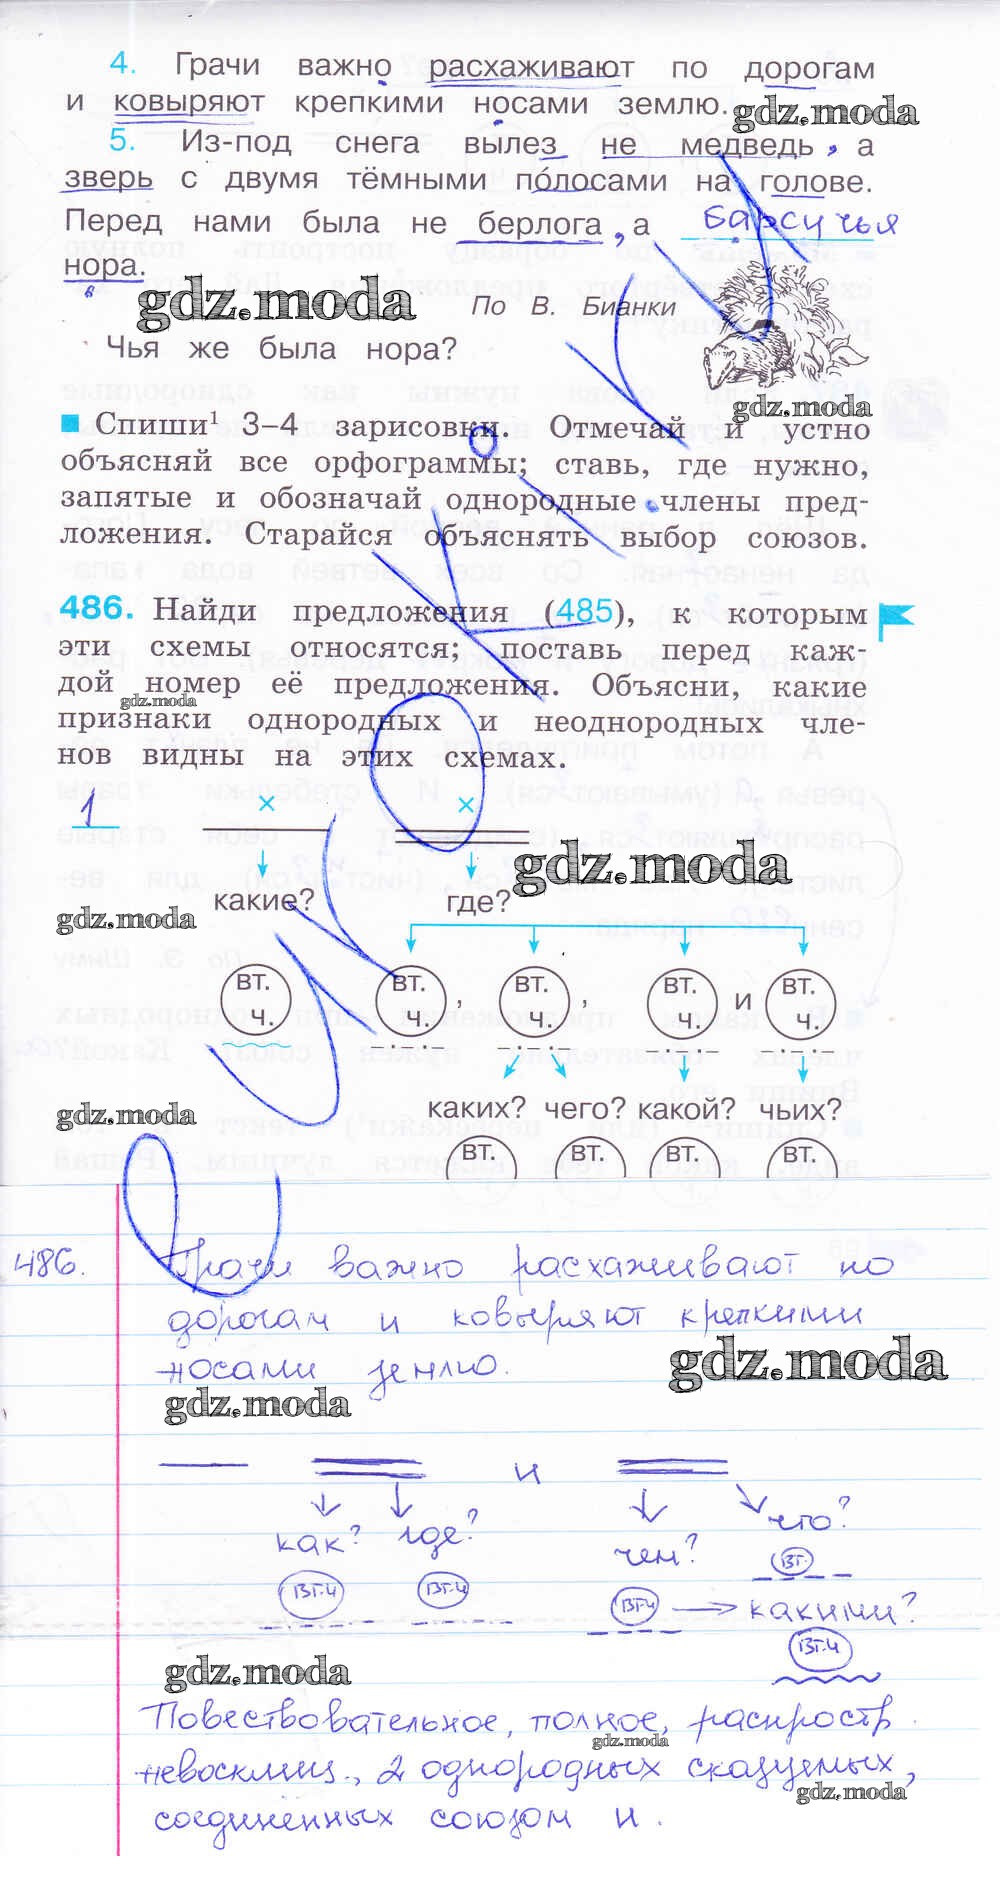 4. Грачи важно расхаживают по дорогам
и ковыряют крепкими носами землю.
gdz.moda
5. Из-под снега вылез не медведь, а
зверь с двумя тёмными по́лосами на голове.
Перед нами была не берлога, а барсучья
нора.
gdz.moda
По В. Бианки
Чья же была нора?
gdz.moda
Спиши¹ 3–4 зарисовки. Отмечай и устно
объясняй все орфограммы; ставь, где нужно,
запятые и обозначай однородные члены пред-
ложения. Старайся объяснять выбор союзов.
486. Найди предложения (485), к которым
эти схемы относятся; поставь перед каж-
дой номер её предложения. Объясни, какие
gdz.moda
признаки однородных и неоднородных чле-
нов видны на этих схемах.
1 × ×
gdz.moda
какие? где?
gdz.moda
вт. ч. вт. ч. , вт. ч. , вт. ч. и вт. ч.
каких? чего? какой? чьих?
gdz.moda
вт. вт. вт. вт.
486. Грачи важно расхаживают по
дорогам и ковыряют крепкими
носами землю.
gdz.moda
gdz.moda
и
как? где? чем? что?
вт.ч вт.ч вт.ч вт.
какими?
вт.ч
gdz.moda
Повествовательное, полное, распростр.
gdz.moda
невосклиц., 2 однородных сказуемых,
gdz.moda
соединённых союзом и.